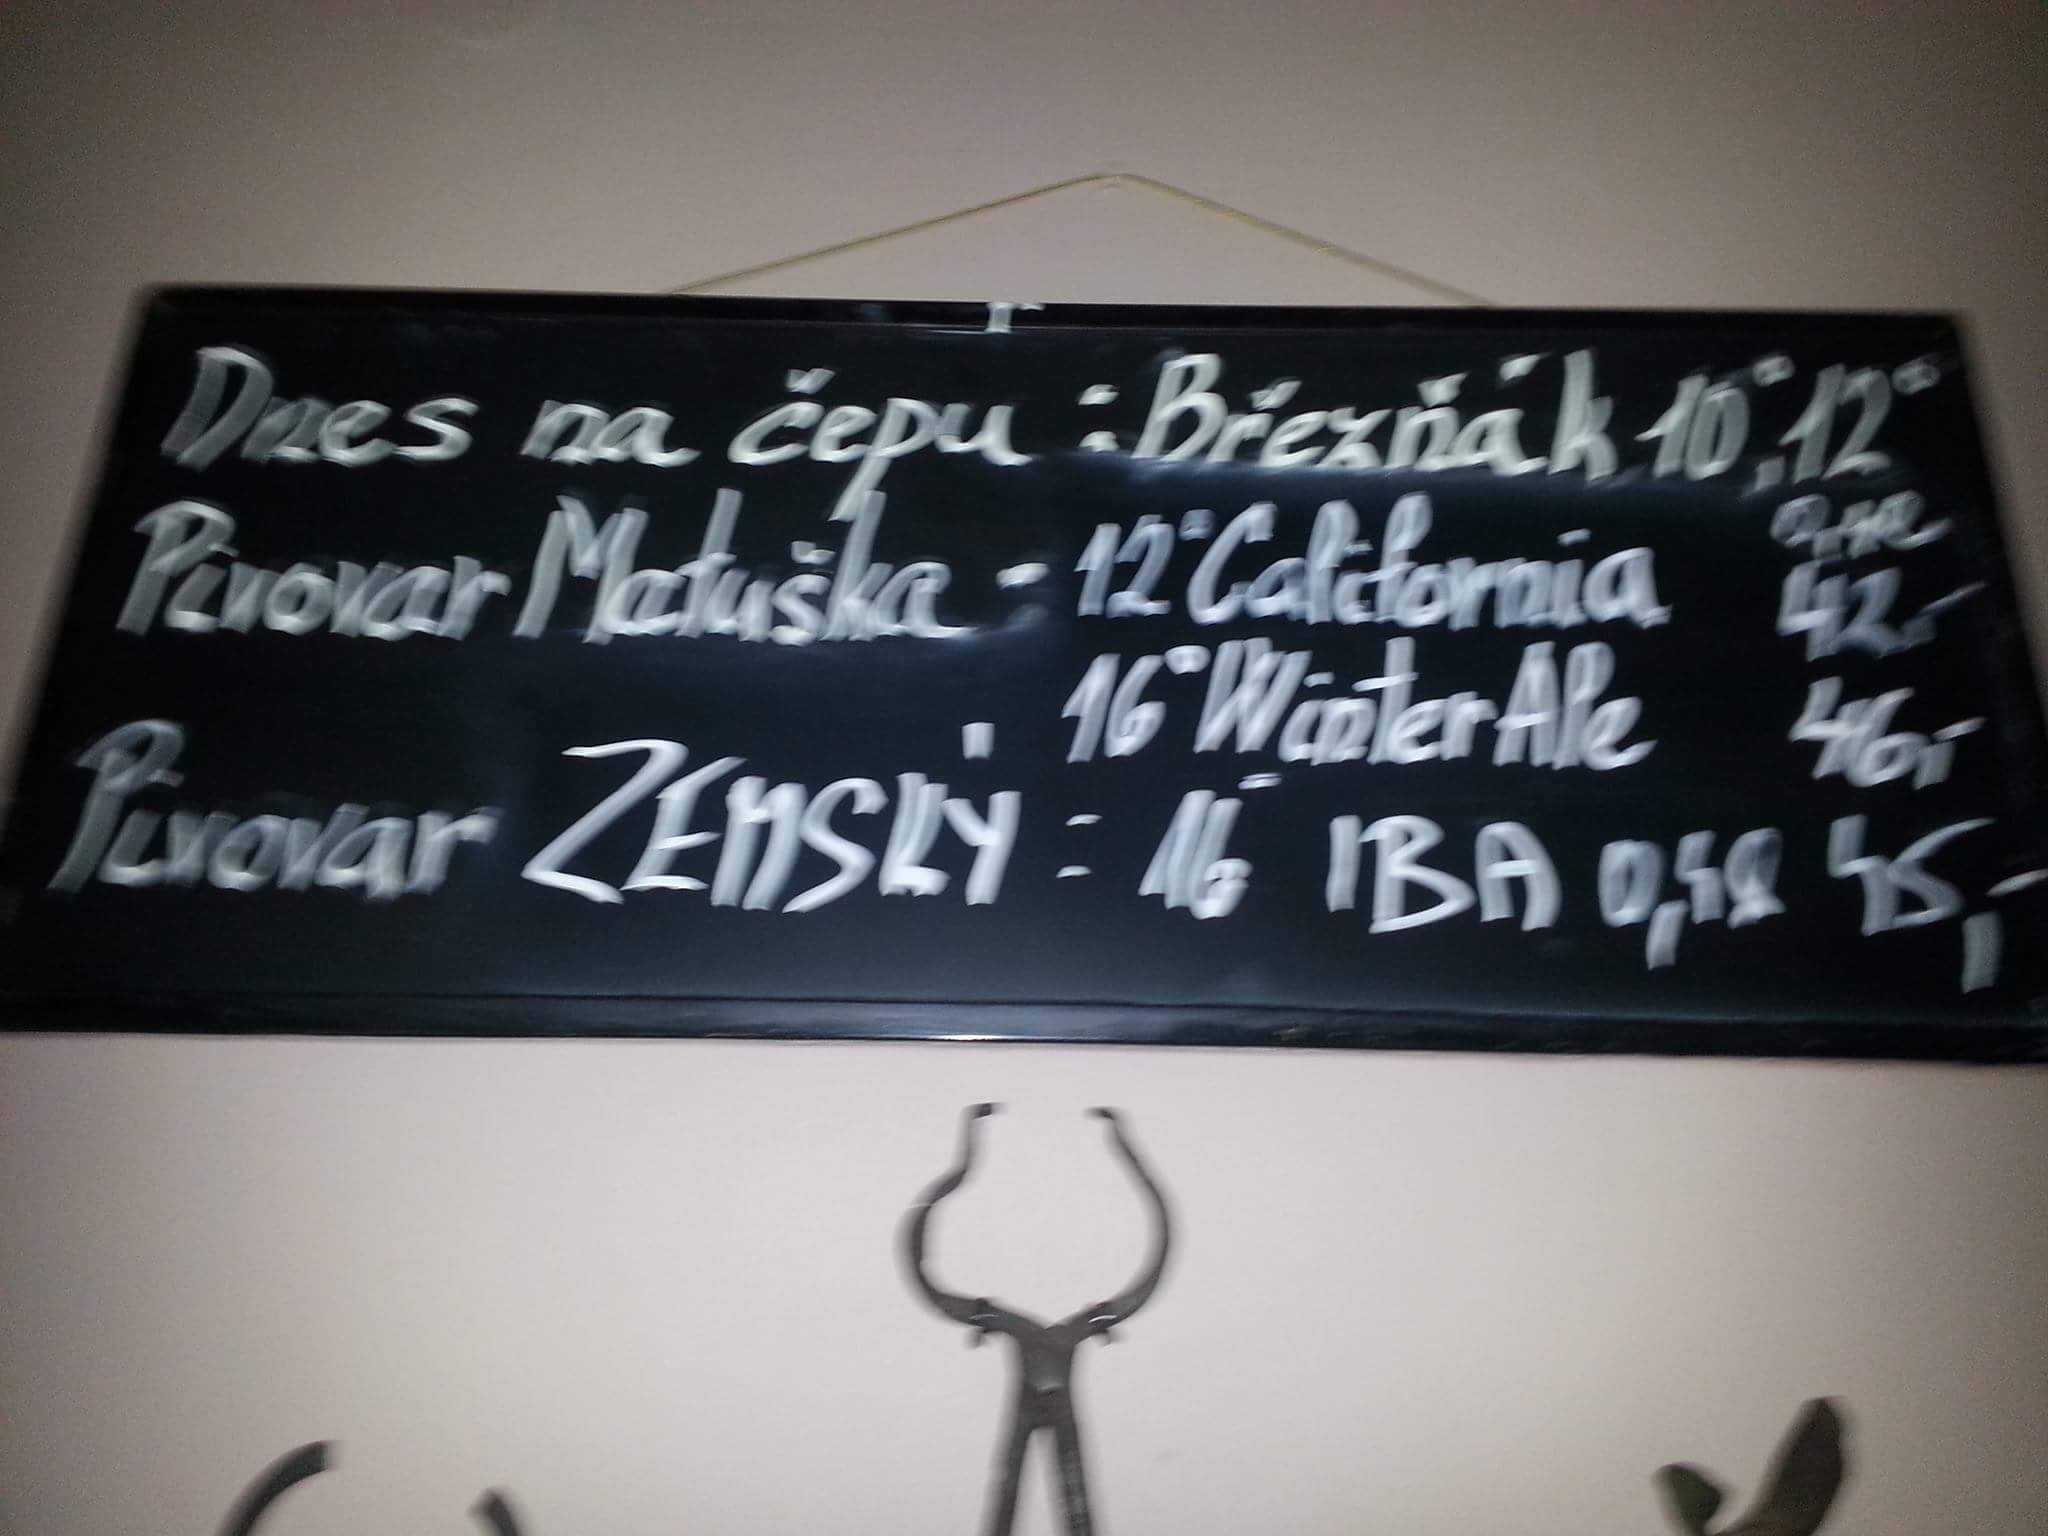 Dnes na čepu : Březňák 10°, 12°
0,4l
Pivovar Matuška - 12° California 42,-
16° Winter Ale 46,-
Pivovar ZEMSKÝ : 16° IBA 0,4l 45,-